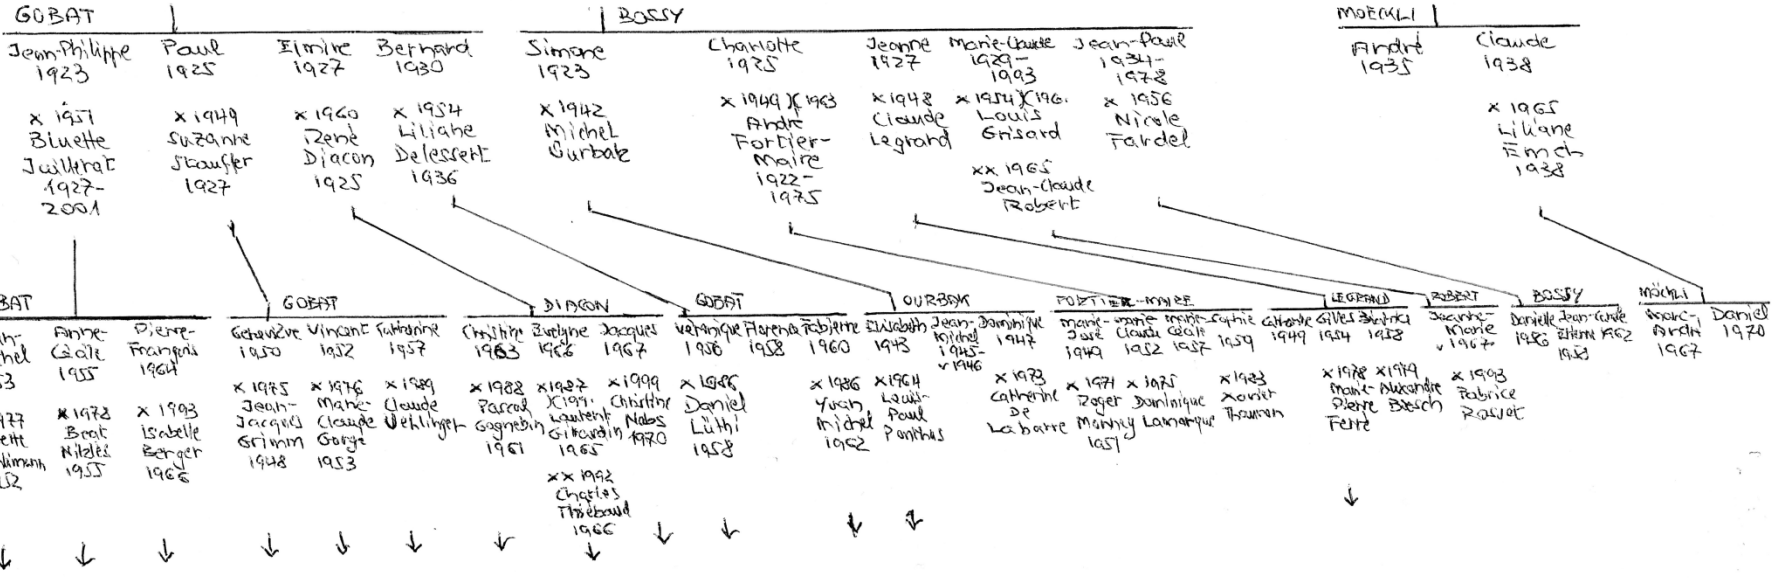 GOBAT
BOSSY
MOECKLI
Jean-Philippe
1923
x 1951
Bluette
Juillerat
1927-
2001
Paul
1925
x 1949
Suzanne
Stauffer
1927
Elmire
1927
x 1960
René
Diacon
1925
Bernard
1930
x 1954
Liliane
Delessert
1936
Simone
1923
x 1942
Michel
Ourbak
Charlotte
1925
x 1949 )( 1963
André
Fortier-
Maire
1922-
1975
Jeanne
1927
x 1948
Claude
Legrand
Marie-Claude
1929-
1993
x 1954 )( 196.
Louis
Grisard
xx 1965
Jean-Claude
Robert
Jean-Paul
1934-
1978
x 1956
Nicole
Fardel
André
1935
Claude
1938
x 1965
Liliane
Emch
1938
BAT
GOBAT
DIACON
GOBAT
OURBAK
FORTIER-MAIRE
LEGRAND
ROBERT
BOSSY
Möckli
Anne-
Cécile
1955
x 1978
Beat
1955
Pierre-
François
1964
x 1993
Isabelle
Berger
1966
Geneviève
1950
x 1975
Jean-
Jacques
Grimm
1948
Vincent
1952
x 1976
Marie-
Claude
Gorgé
1953
Catherine
1957
x 1989
Claude
Uehlinger
Christine
1963
x 1988
Pascal
Gagnebin
1961
Evelyne
1966
x 1987
)( 199.
Laurent
Girardin
1965
xx 1992
Charles
Thiébaud
1966
Jacques
1967
x 1999
Christine
Nobs
1970
Véronique
1956
x 1986
Daniel
Lüthi
1958
Florence
1958
Fabienne
1960
x 1986
Yvan
Michel
1962
Elisabeth
1943
x 1964
Louis-
Paul
Ponthus
Jean-
Michel
1945-
1946
Dominique
1947
x 1973
Catherine
De
Labarre
Marie-
José
1949
x 1971
Roger
Monney
1951
Marie-
Claude
1952
x 1975
Dominique
Lamarque
Marie-
Cécile
1957
Sophie
1959
x 1983
Xavier
Catherine
1949
Gilles
1954
x 1978
Marie-
Pierre
Ferré
Béatrice
1958
x 1979
Alexandre
Bosch
Jeanne-
Marie
1967
x 1993
Fabrice
Danielle
1956
Jean-Claude
Etienne 1962
1958
Marc-
André
1967
Daniel
1970